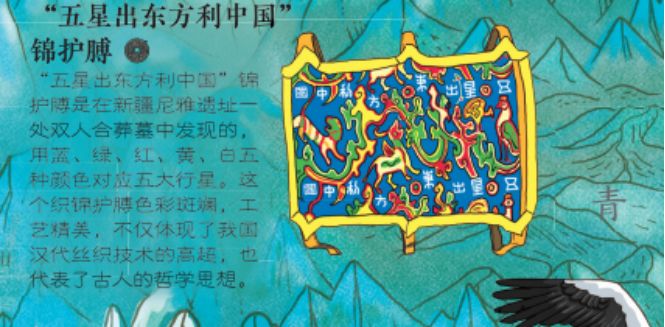 “五星出东方利中国”
锦护膊
“五星出东方利中国”锦
护膊是在新疆尼雅遗址一
处双人合葬墓中发现的，
用蓝、绿、红、黄、白五
种颜色对应五大行星。这
个织锦护膊色彩斑斓，工
艺精美，不仅体现了我国
汉代丝织技术的高超，也
代表了古人的哲学思想。
國中利方東出星五
國中利方東出星五
青